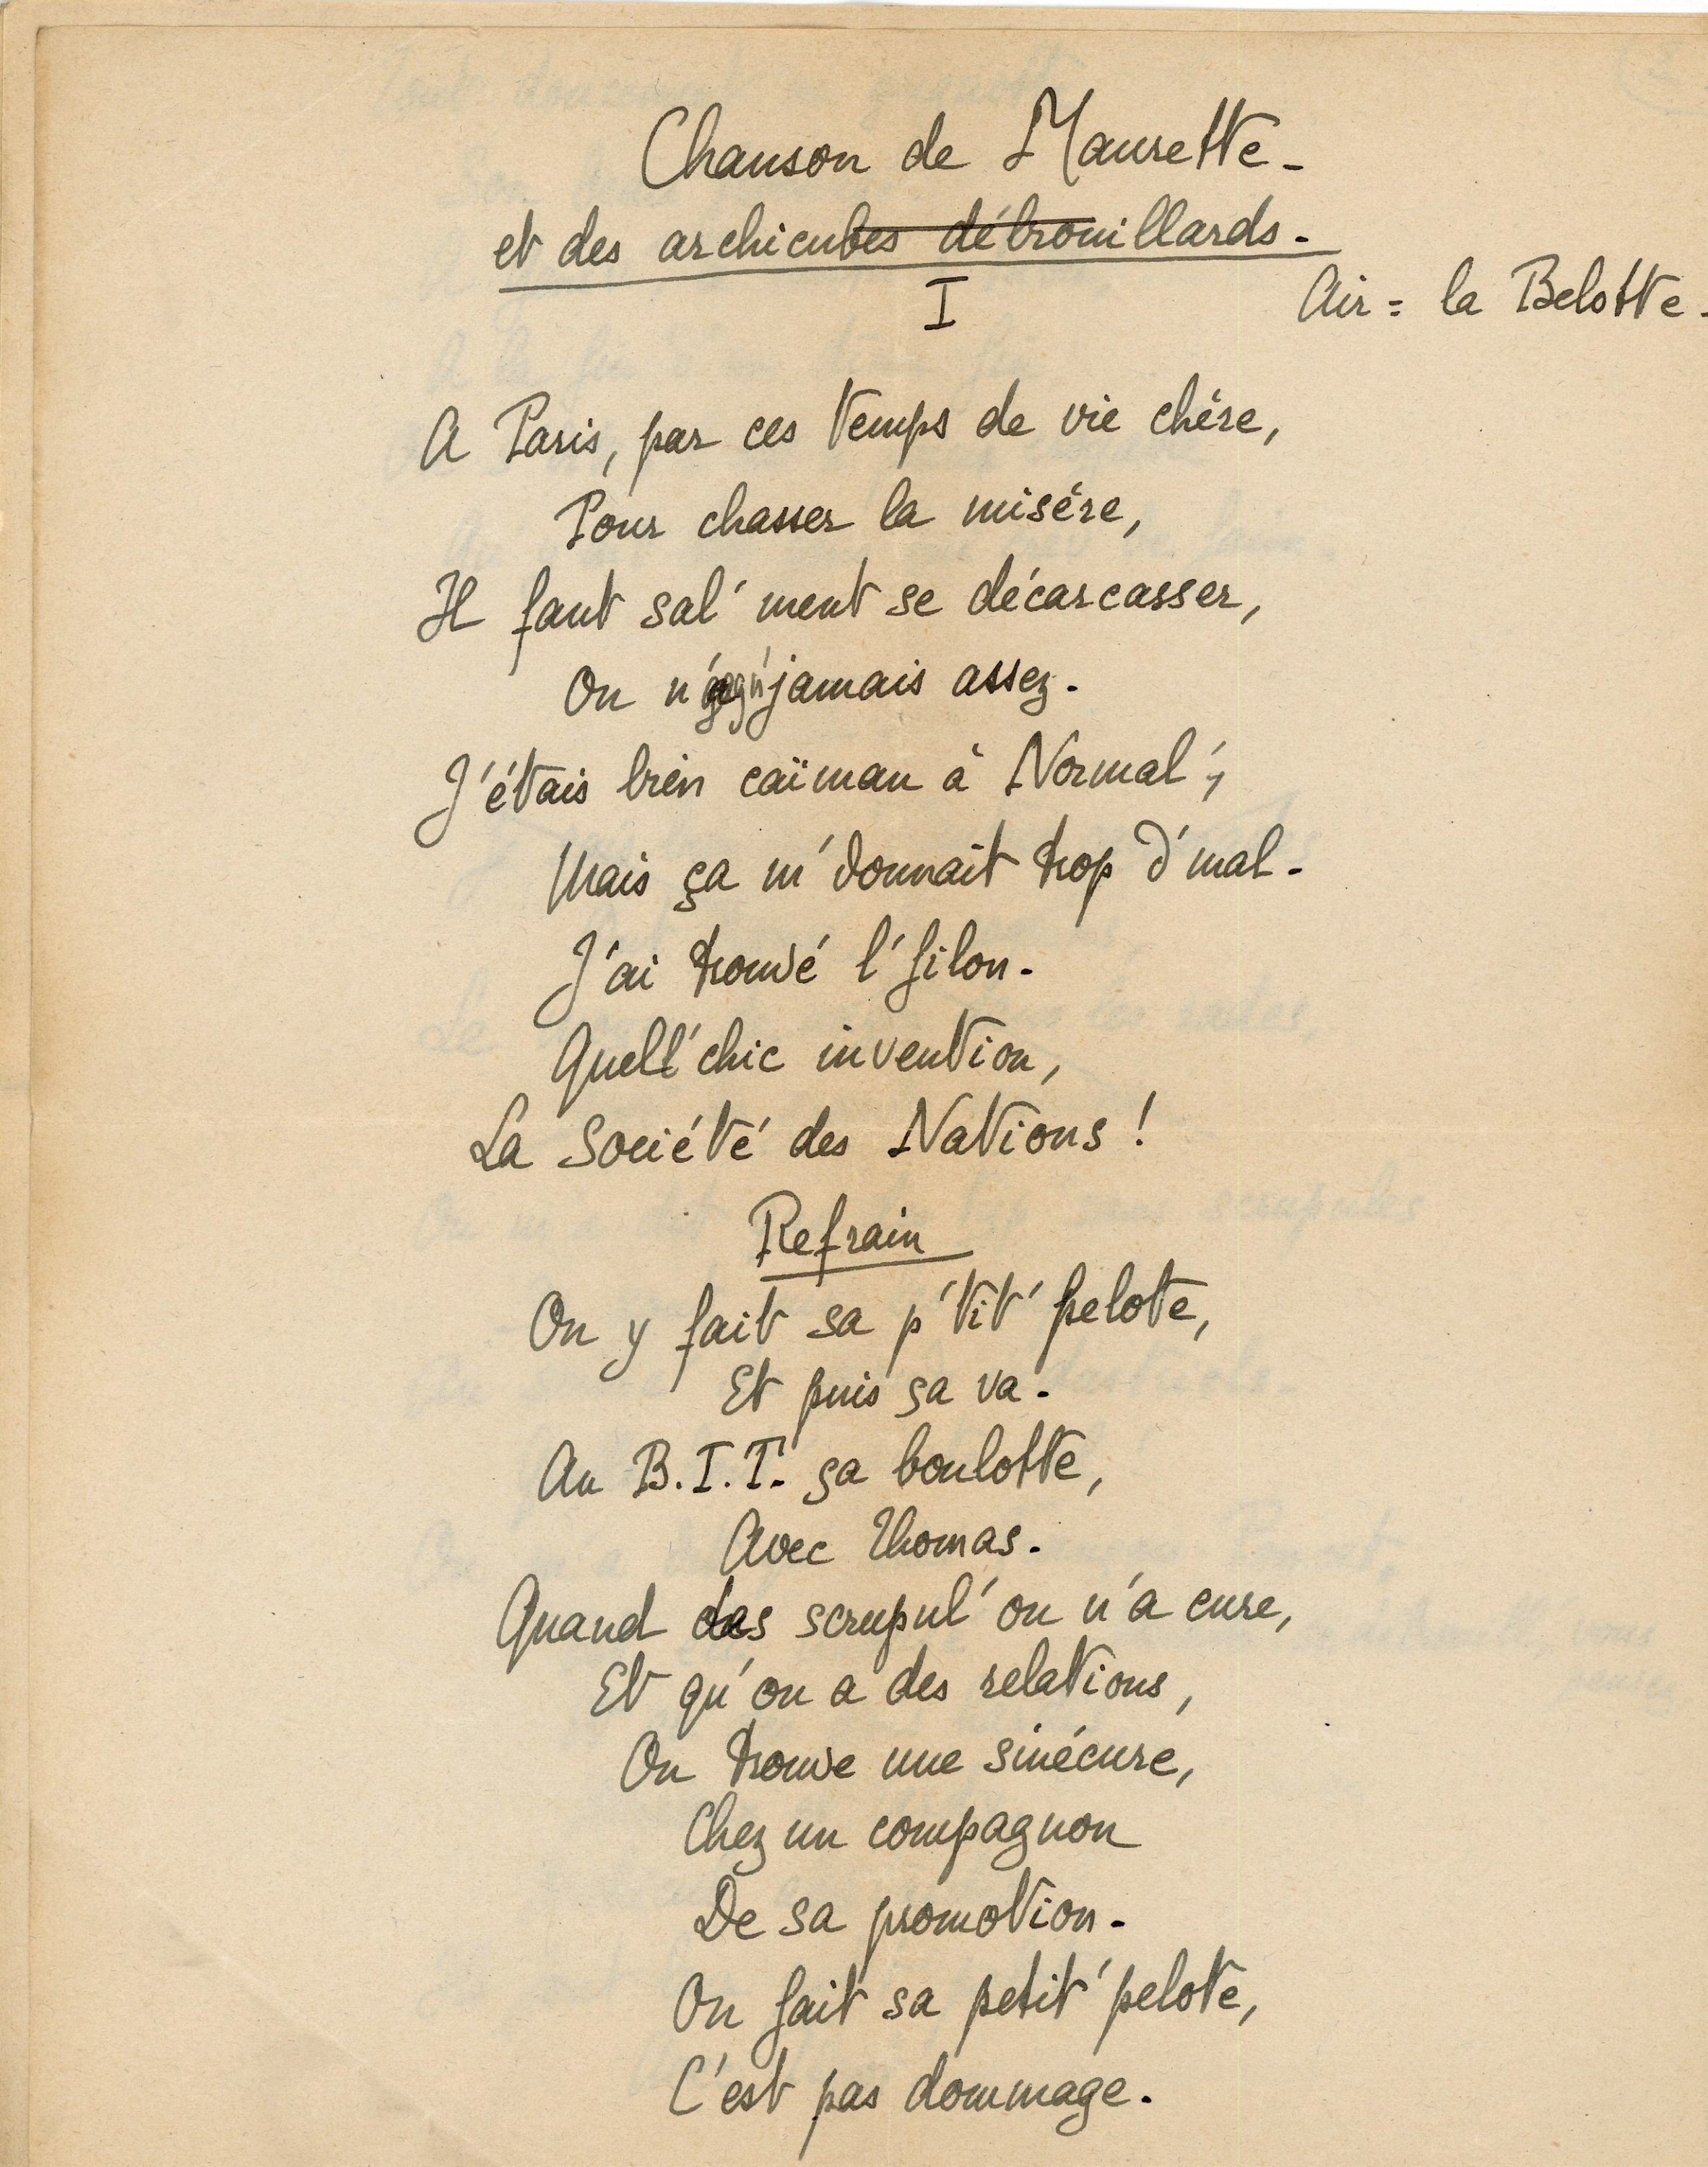 Chanson de Maurette -
et des archicubes débrouillards -
I
Air = la Belotte -
A Paris, par ces temps de vie chère,
Pour chasser la misère,
Il faut sal' ment se décarcasser,
On n' gagn' jamais assez.
J'étais bien caïman à Normal',
Mais ça m' donnait trop d' mal -
J'ai trouvé l' filon -
Quell' chic invention,
La Société des Nations !
Refrain
On y fait sa p'tit' pelote,
Et puis ça va -
Au B.I.T. ça boulotte,
Avec Thomas -
Quand des scrupul' on n'a cure,
Et qu'on a des relations,
On trouve une sinécure,
Chez un compagnon
De sa promotion -
On fait sa petit' pelote,
C'est pas dommage -